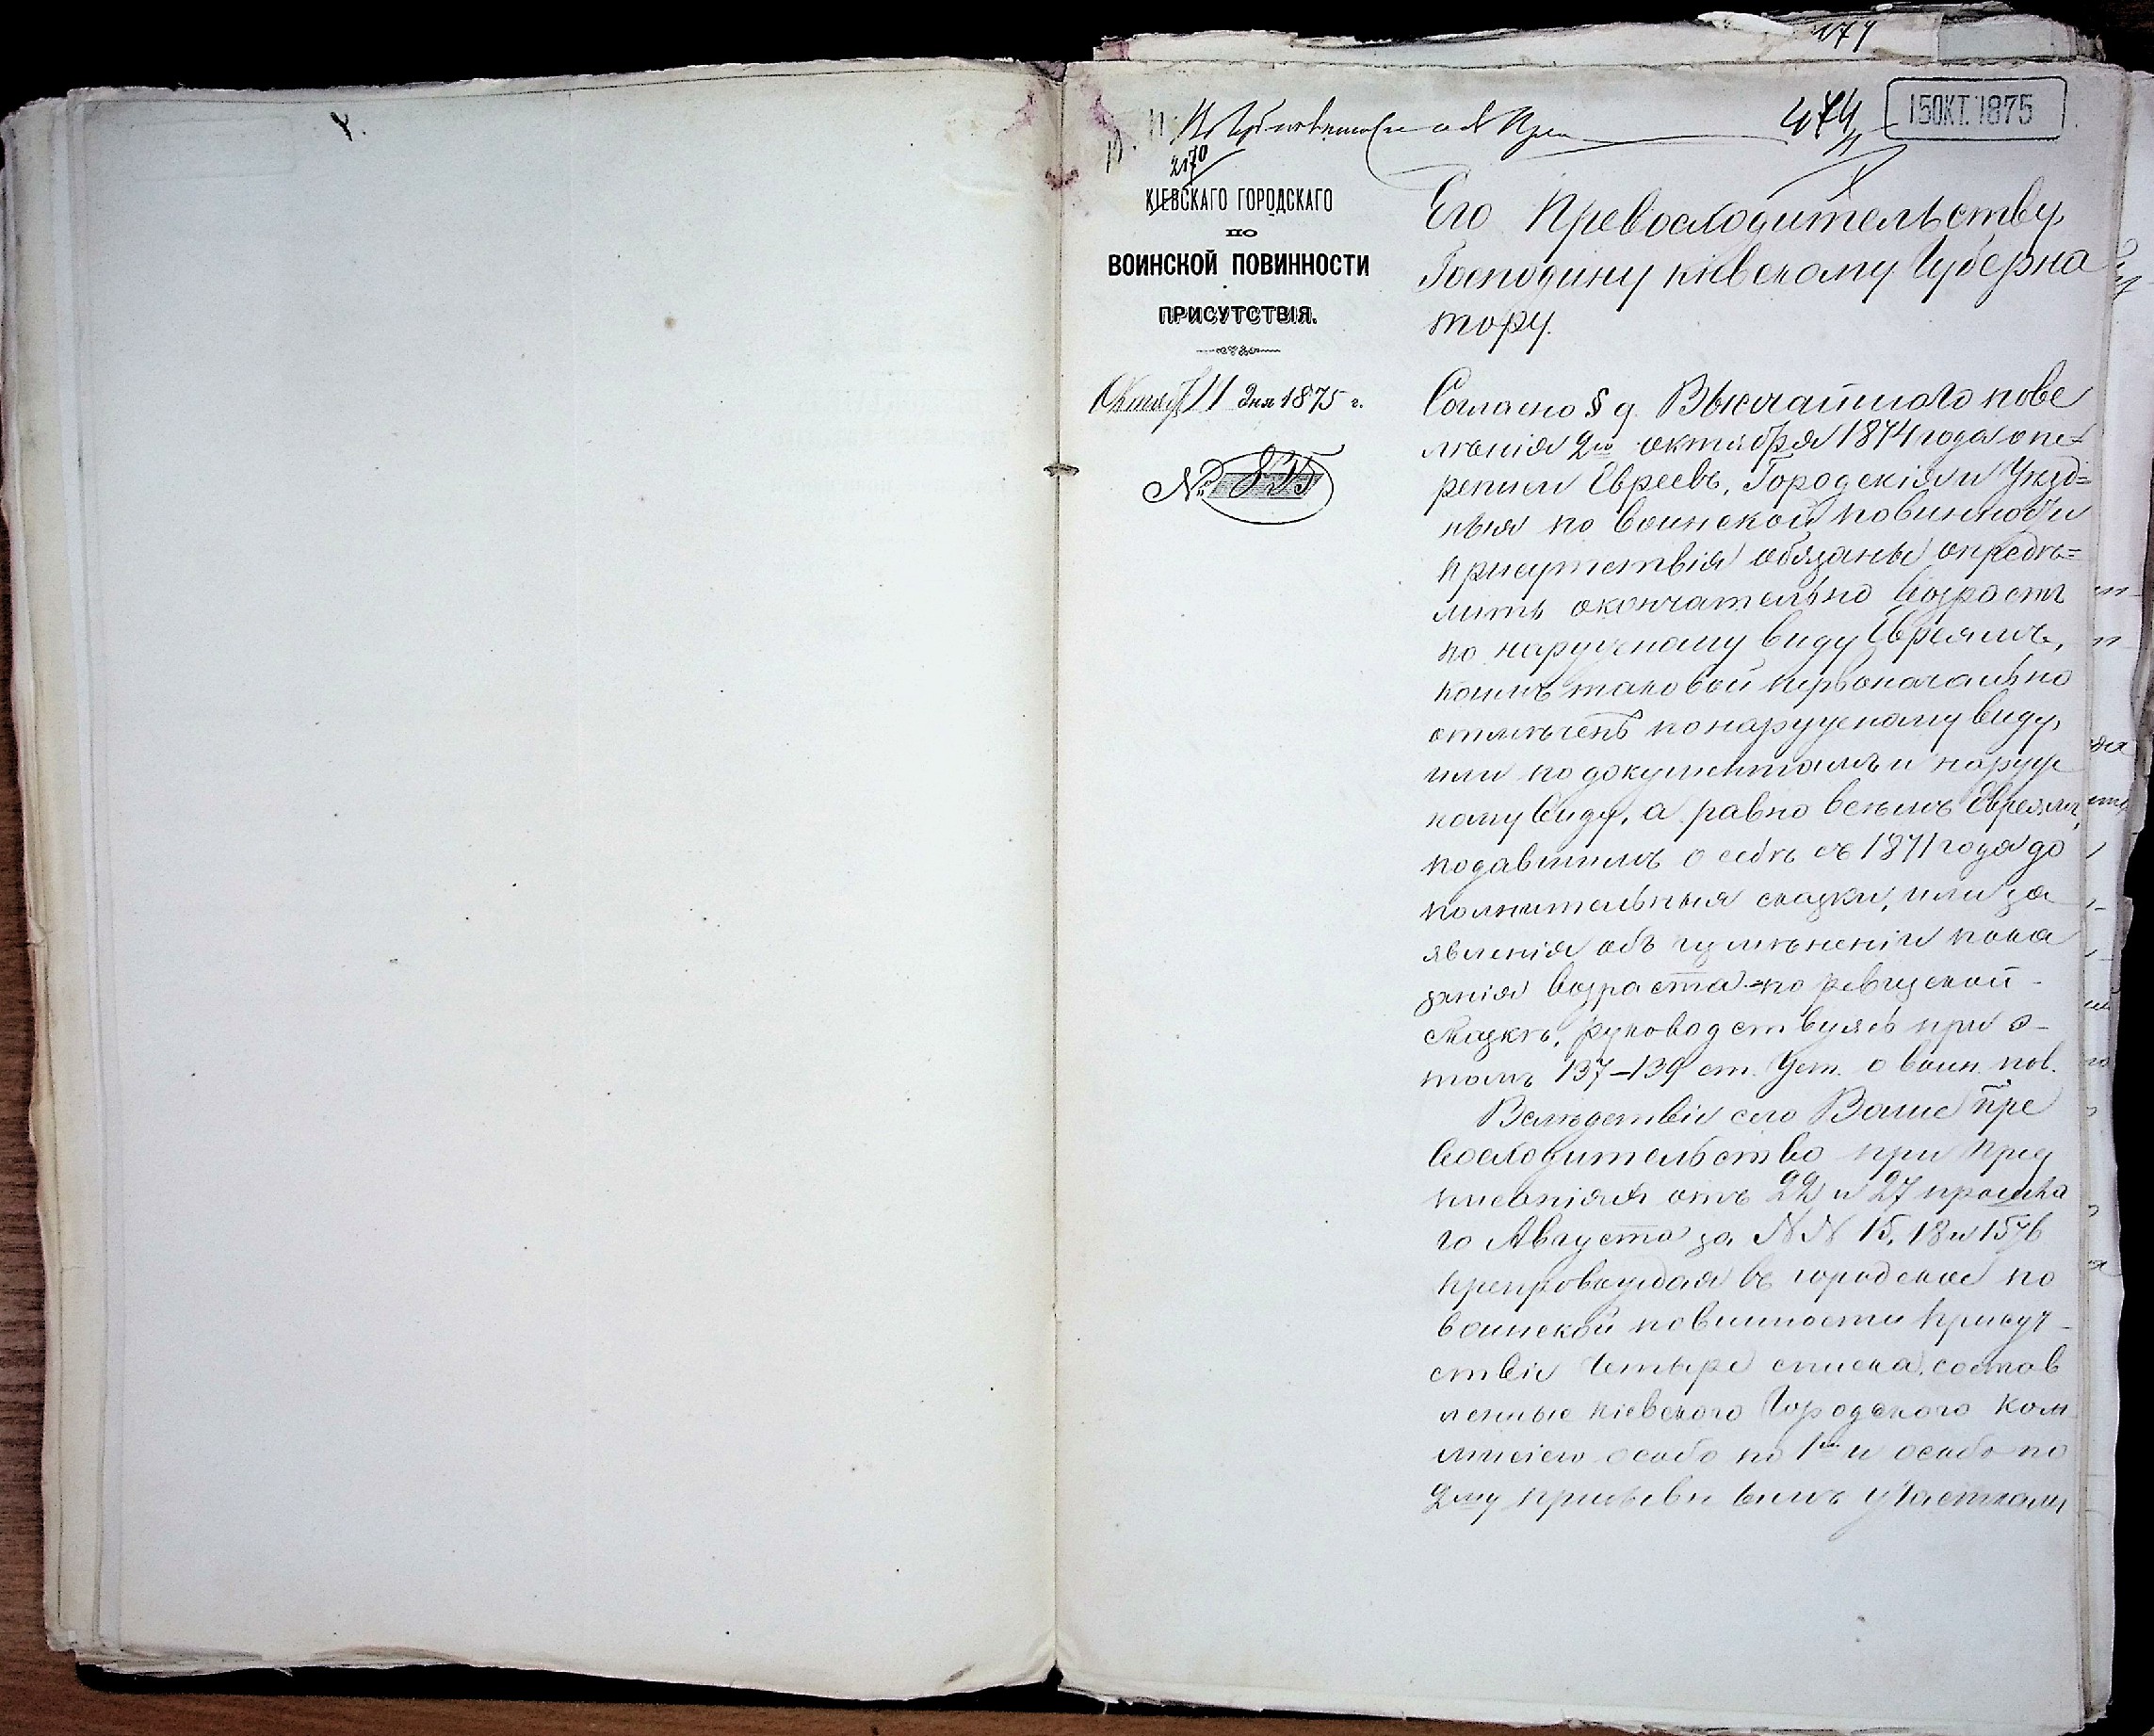 174
474
15 ОКТ. 1875
2170
КІЕВСКАГО ГОРОДСКАГО
ПО
ВОИНСКОЙ ПОВИННОСТИ
ПРИСУТСТВІЯ.
Октября 11 дня 1875 г.
№ 835
Его Превосходительству
Господину Кіевскому Губерна
тору.
Согласно § 9 Высочайшаго пове
лѣнія 2го октября 1874 года о пе=
реписи Евреевъ, Городскія и Уѣзд=
ныя по воинской повинности
присутствія обязаны опредѣ=
лить окончательно возрастъ
по наружному виду Евреямъ,
коимъ таковой первоначально
отмѣченъ по наружному виду,
или по документамъ и наруж
ному виду, а равно всѣмъ Евреямъ,
подавшимъ о себѣ съ 1871 года до
полнительныя сказки, или за
явленія объ измѣненіи пока
занія возраста по ревизской
сказкѣ, руководствуясь при э-
томъ 137–139 ст. Уст. о воин. пов.
Вслѣдствіе сего Ваше Пре
восходительство при пред
писаніяхъ отъ 22 и 27 прошла
го Августа за №№ 15, 18 и
препровождая въ городское по
воинской повинности присут-
ствіе четыре списка, состав
ленные Кіевскою Городскою Ком
мисіею особо по 1му и особо по
2му призывнымъ участкамъ